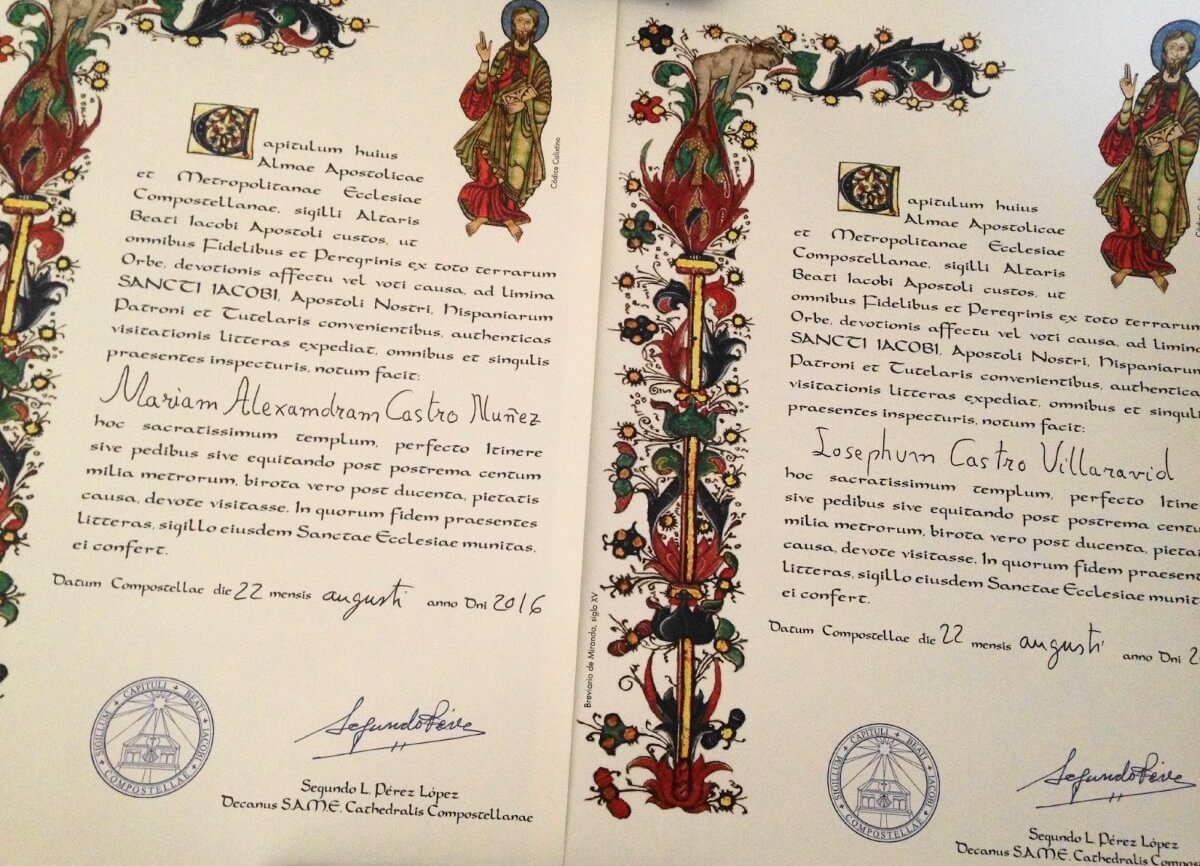 Capitulum huius
Almae Apostolicae
et Metropolitanae Ecclesiae
Compostellanae, sigilli Altaris
Beati Iacobi Apostoli custos, ut
omnibus Fidelibus et Peregrinis ex toto terrarum
Orbe, devotionis affectu vel voti causa, ad limina
SANCTI IACOBI, Apostoli Nostri, Hispaniarum
Patroni et Tutelaris convenientibus, authenticas
visitationis litteras expediat, omnibus et singulis
praesentes inspecturis, notum facit:
Mariam Alexamdram Castro Nuñez
hoc sacratissimum templum, perfecto Itinere
sive pedibus sive equitando post postrema centum
milia metrorum, birota vero post ducenta, pietatis
causa, devote visitasse. In quorum fidem praesentes
litteras, sigillo eiusdem Sanctae Ecclesiae munitas,
ei confert.
Datum Compostellae die 22 mensis augusti anno Dni 2016
SIGILLUM + CAPITULI + BEATI + IACOBI + COMPOSTELLAE +
Segundo Pérez
Segundo L. Pérez López
Decanus S.A.M.E. Cathedralis Compostellanae
Códice Calixtino
Capitulum huius
Almae Apostolicae
et Metropolitanae Ecclesiae
Compostellanae, sigilli Altaris
Beati Iacobi Apostoli custos, ut
omnibus Fidelibus et Peregrinis ex toto terrarum
Orbe, devotionis affectu vel voti causa, ad limina
SANCTI IACOBI, Apostoli Nostri, Hispaniarum
Patroni et Tutelaris convenientibus, authentica
visitationis litteras expediat, omnibus et singuli
praesentes inspecturis, notum facit:
Iosephum Castro Villaravid
hoc sacratissimum templum, perfecto Itine
sive pedibus sive equitando post postrema centu
milia metrorum, birota vero post ducenta, pietat
causa, devote visitasse. In quorum fidem praesen
litteras, sigillo eiusdem Sanctae Ecclesiae munit
ei confert.
Datum Compostellae die 22 mensis augusti anno Dni 2
SIGILLUM + CAPITULI + BEATI + IACOBI + COMPOSTELLAE +
Segundo Pérez
Segundo L. Pérez López
Decanus S.A.M.E. Cathedralis Compos
Breviario de Miranda, siglo XV